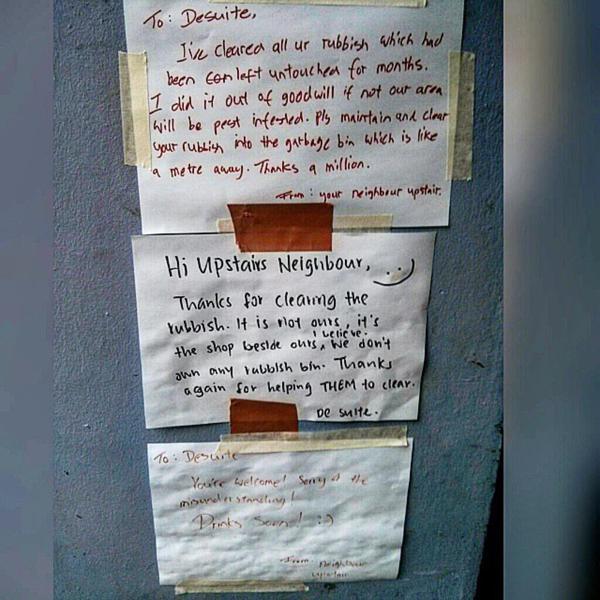 To: Desuite,
I've cleared all ur rubbish which had
been left untouched for months.
I did it out of goodwill if not our area
will be pest infested. Pls maintain and clear
your rubbish into the garbage bin which is like
a metre away. Thanks a million.
From: your neighbour upstair.
Hi Upstairs Neighbour,
Thanks for clearing the
rubbish. It is not ours, it's
I believe.
the shop beside ours, we don't
own any rubbish bin. Thanks
again for helping THEM to clear.
De suite.
To: Desuite
You're welcome! Sorry of the
misunderstanding!
Drinks Soon! :)
From: Neighbour
Upstair